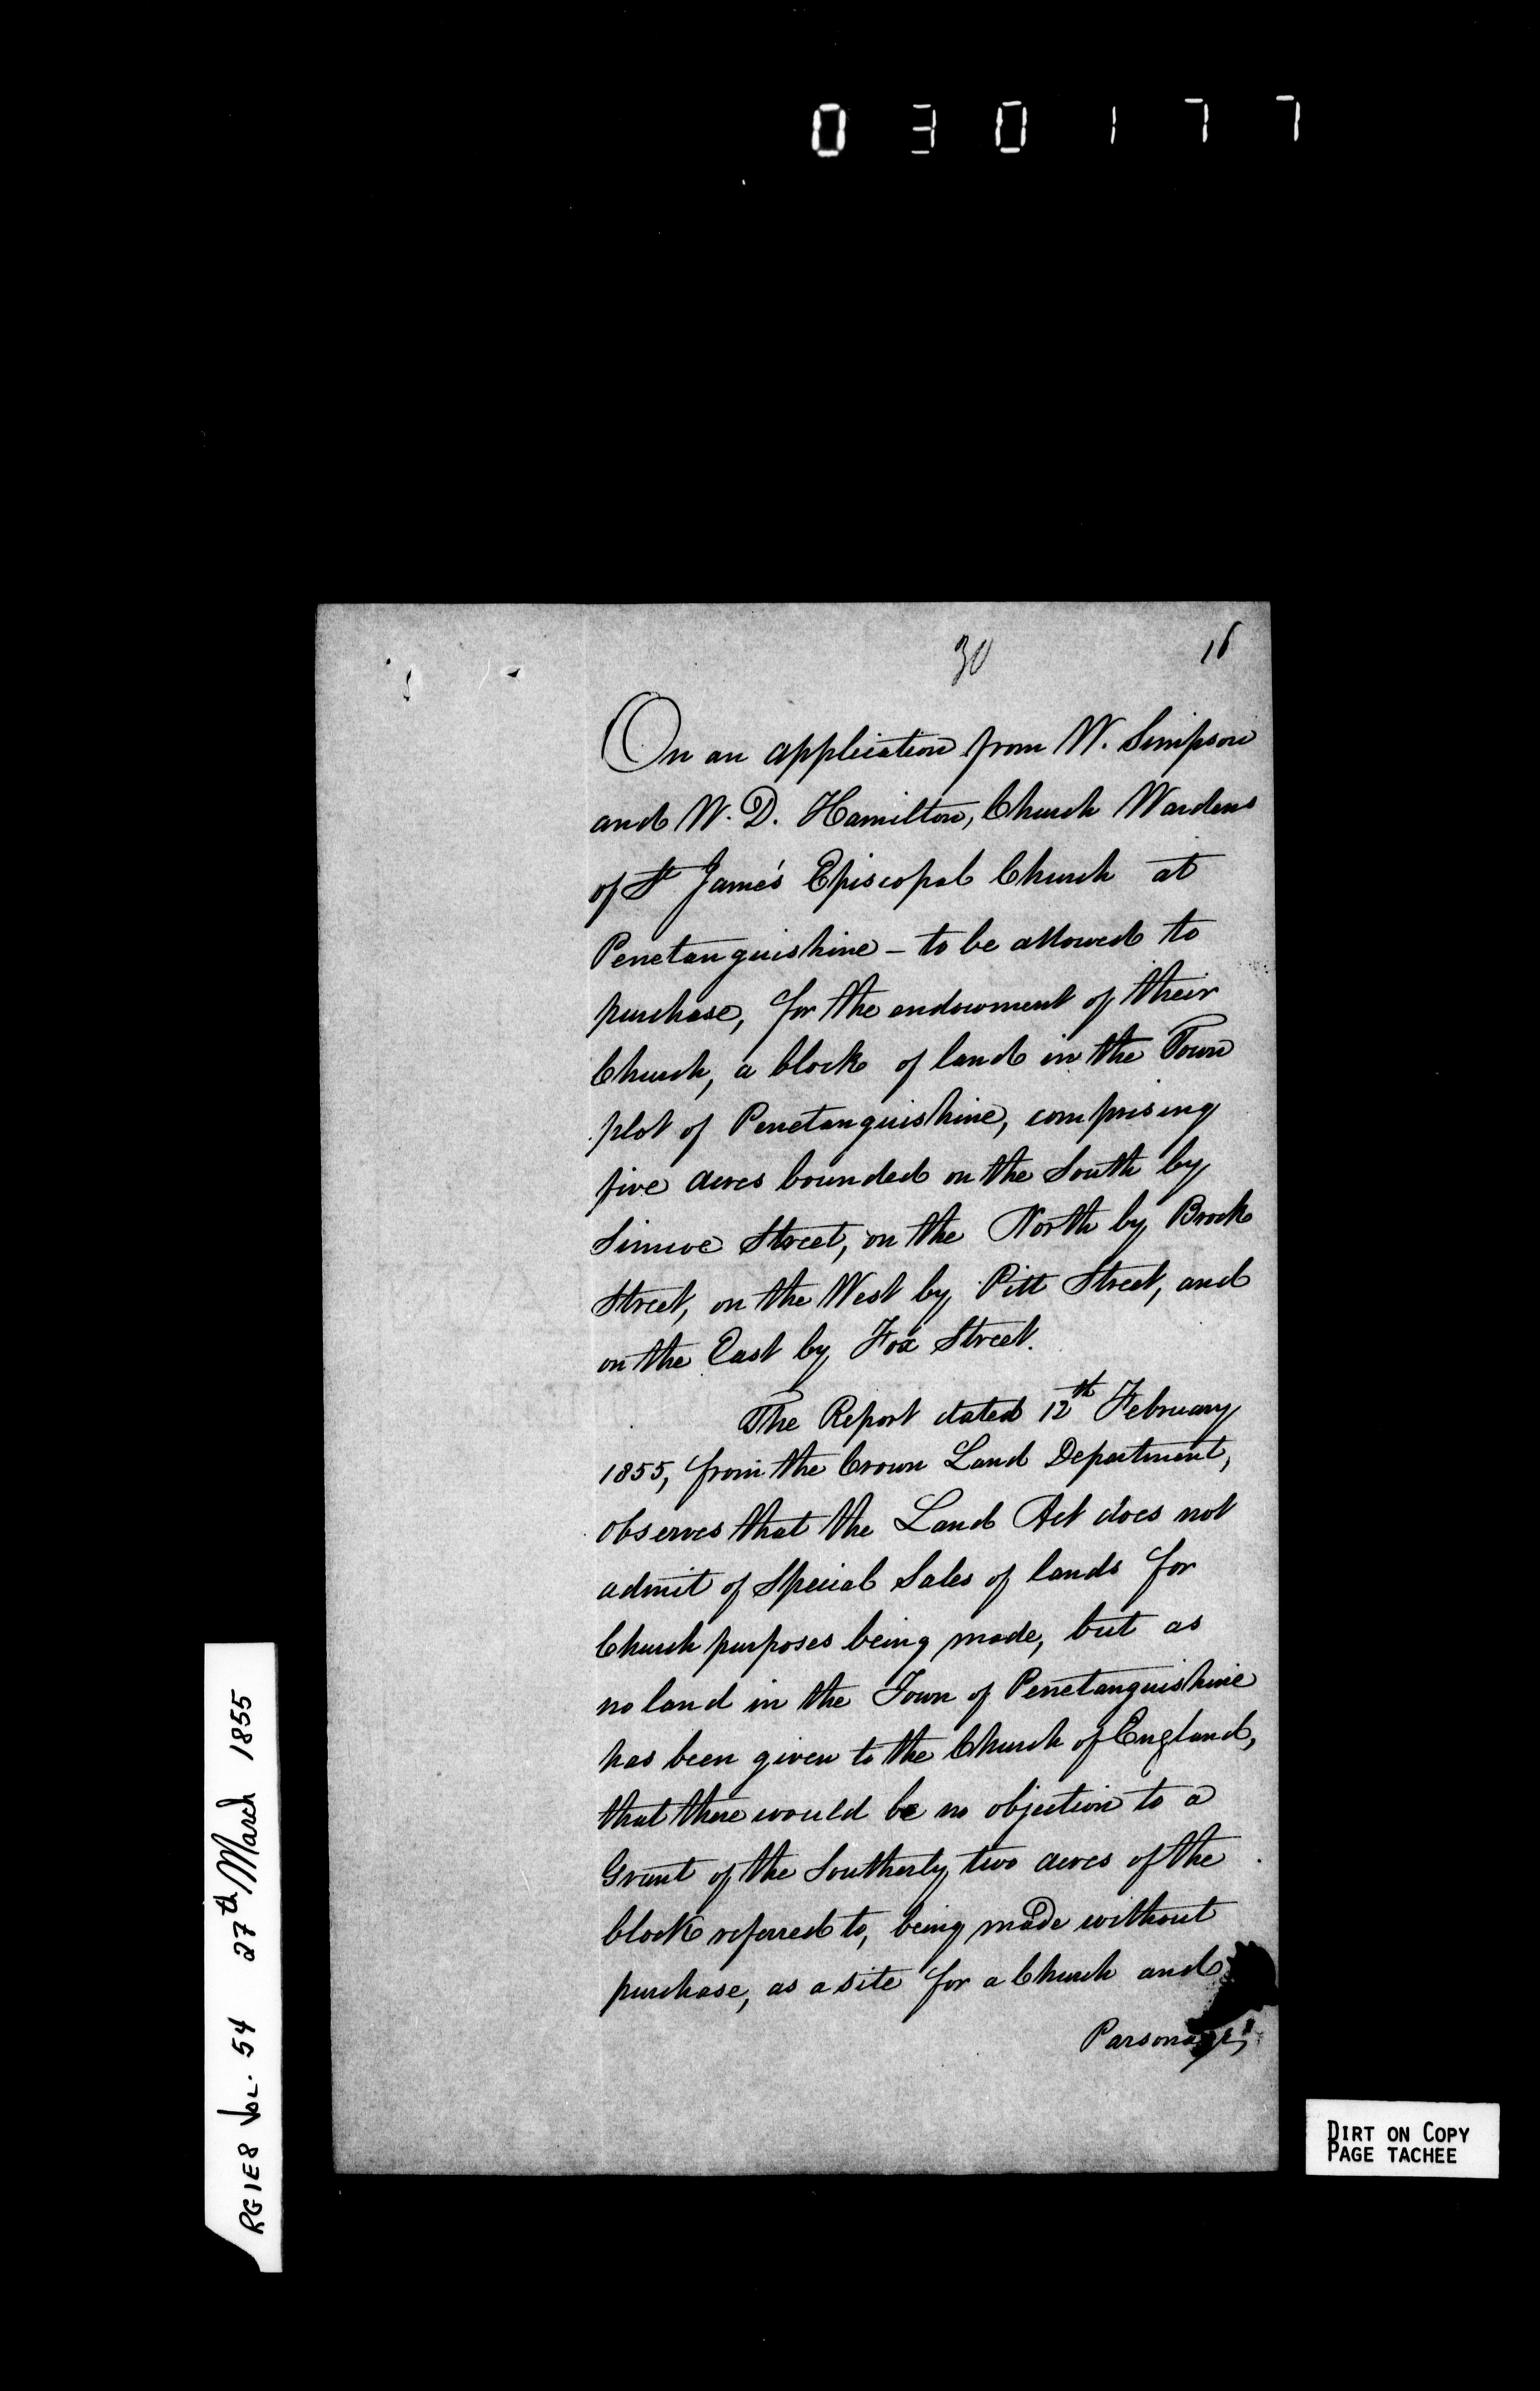 030177
30
16
On an application from W. Simpson
and W. D. Hamilton, Church Wardens
of St James's Episcopal Church at
Penetanguishine – to be allowed to
purchase, for the endowment of their
Church, a block of land in the Town
plot of Penetanguishine, comprising
five acres bounded on the South by
Simcoe Street, on the North by Brock
Street, on the West by Pitt Street, and
on the East by Fox Street.
The Report dated 12th February
1855, from the Crown Land Department,
observes that the Land Act does not
admit of Special Sales of lands for
Church purposes being made, but as
no land in the Town of Penetanguishine
has been given to the Church of England,
that there would be no objection to a
Grant of the Southerly two acres of the
block referred to, being made without
purchase, as a site for a Church and
Parsonage;
RG1E8 Vol. 54 27th March 1855
DIRT ON COPY
PAGE TACHEE